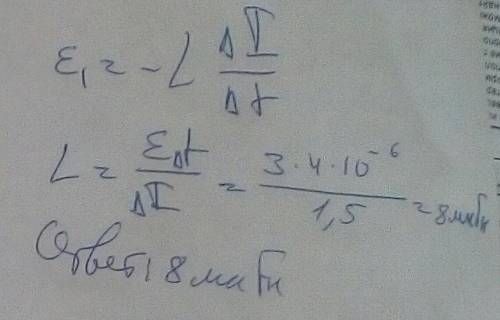 ε₁ = -L ΔI/Δt
L = εΔt/ΔI = 3·4·10⁻⁶/1,5 = 8 мкГн
Ответ: 8 мкГн